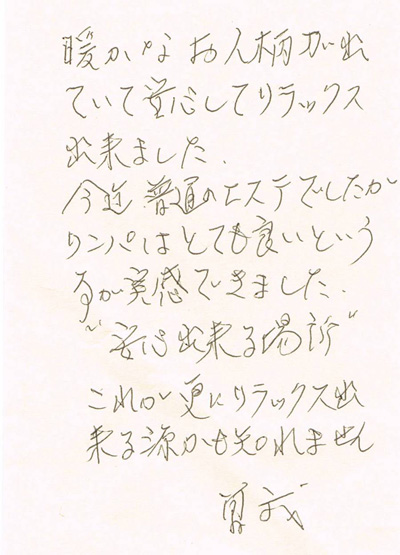 暖かなお人柄が出
ていて安心してリラックス
出来ました、
今迄普通のエステでしたが
リンパはとても良いという
事が実感できました、
"安心出来る場所"
これが更にリラックス出
来る源かも知れません